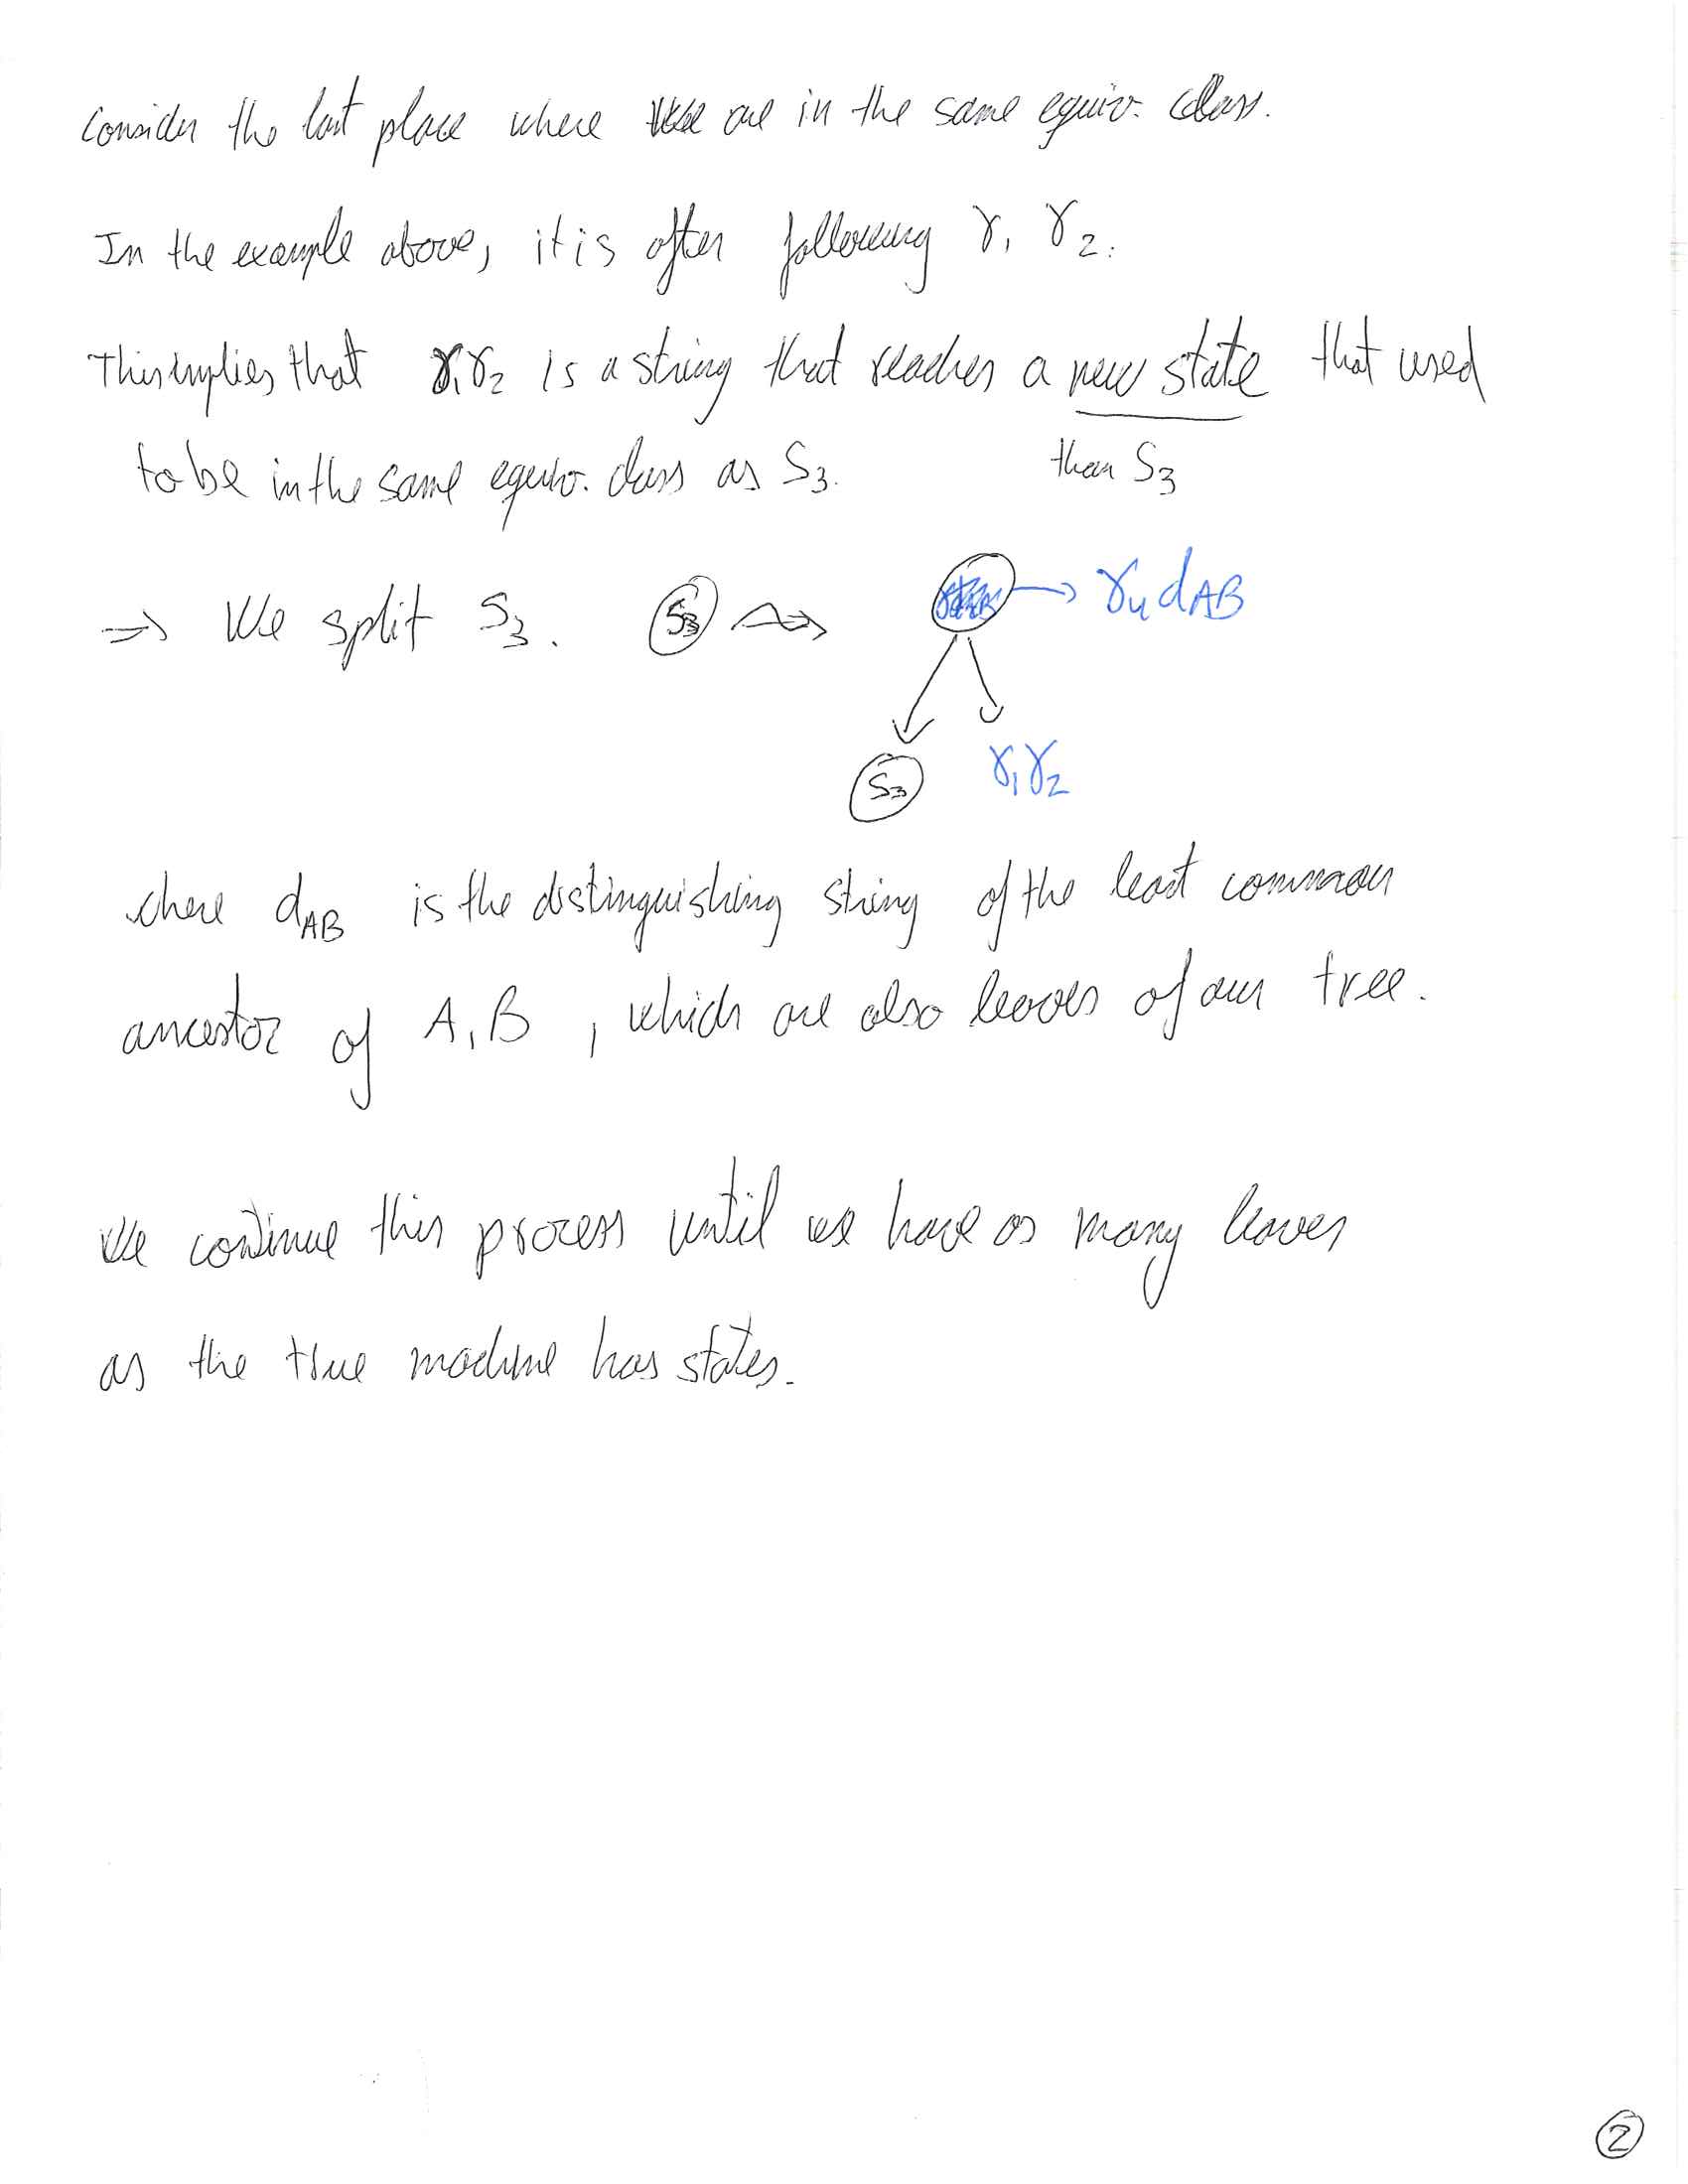 Consider the last place where we are in the same equiv. class.
In the example above, it is after following γ₁ γ₂.
This implies that γ₁γ₂ is a string that reaches a new state that used
to be in the same equiv. class as S₃. than S₃
⇒ We split S₃. S₃ → γ₄ dAB
S₃ γ₁γ₂
where dAB is the distinguishing string of the least common
ancestor of A, B, which are also leaves of our tree.
We continue this process until we have as many leaves
as the true machine has states.
2